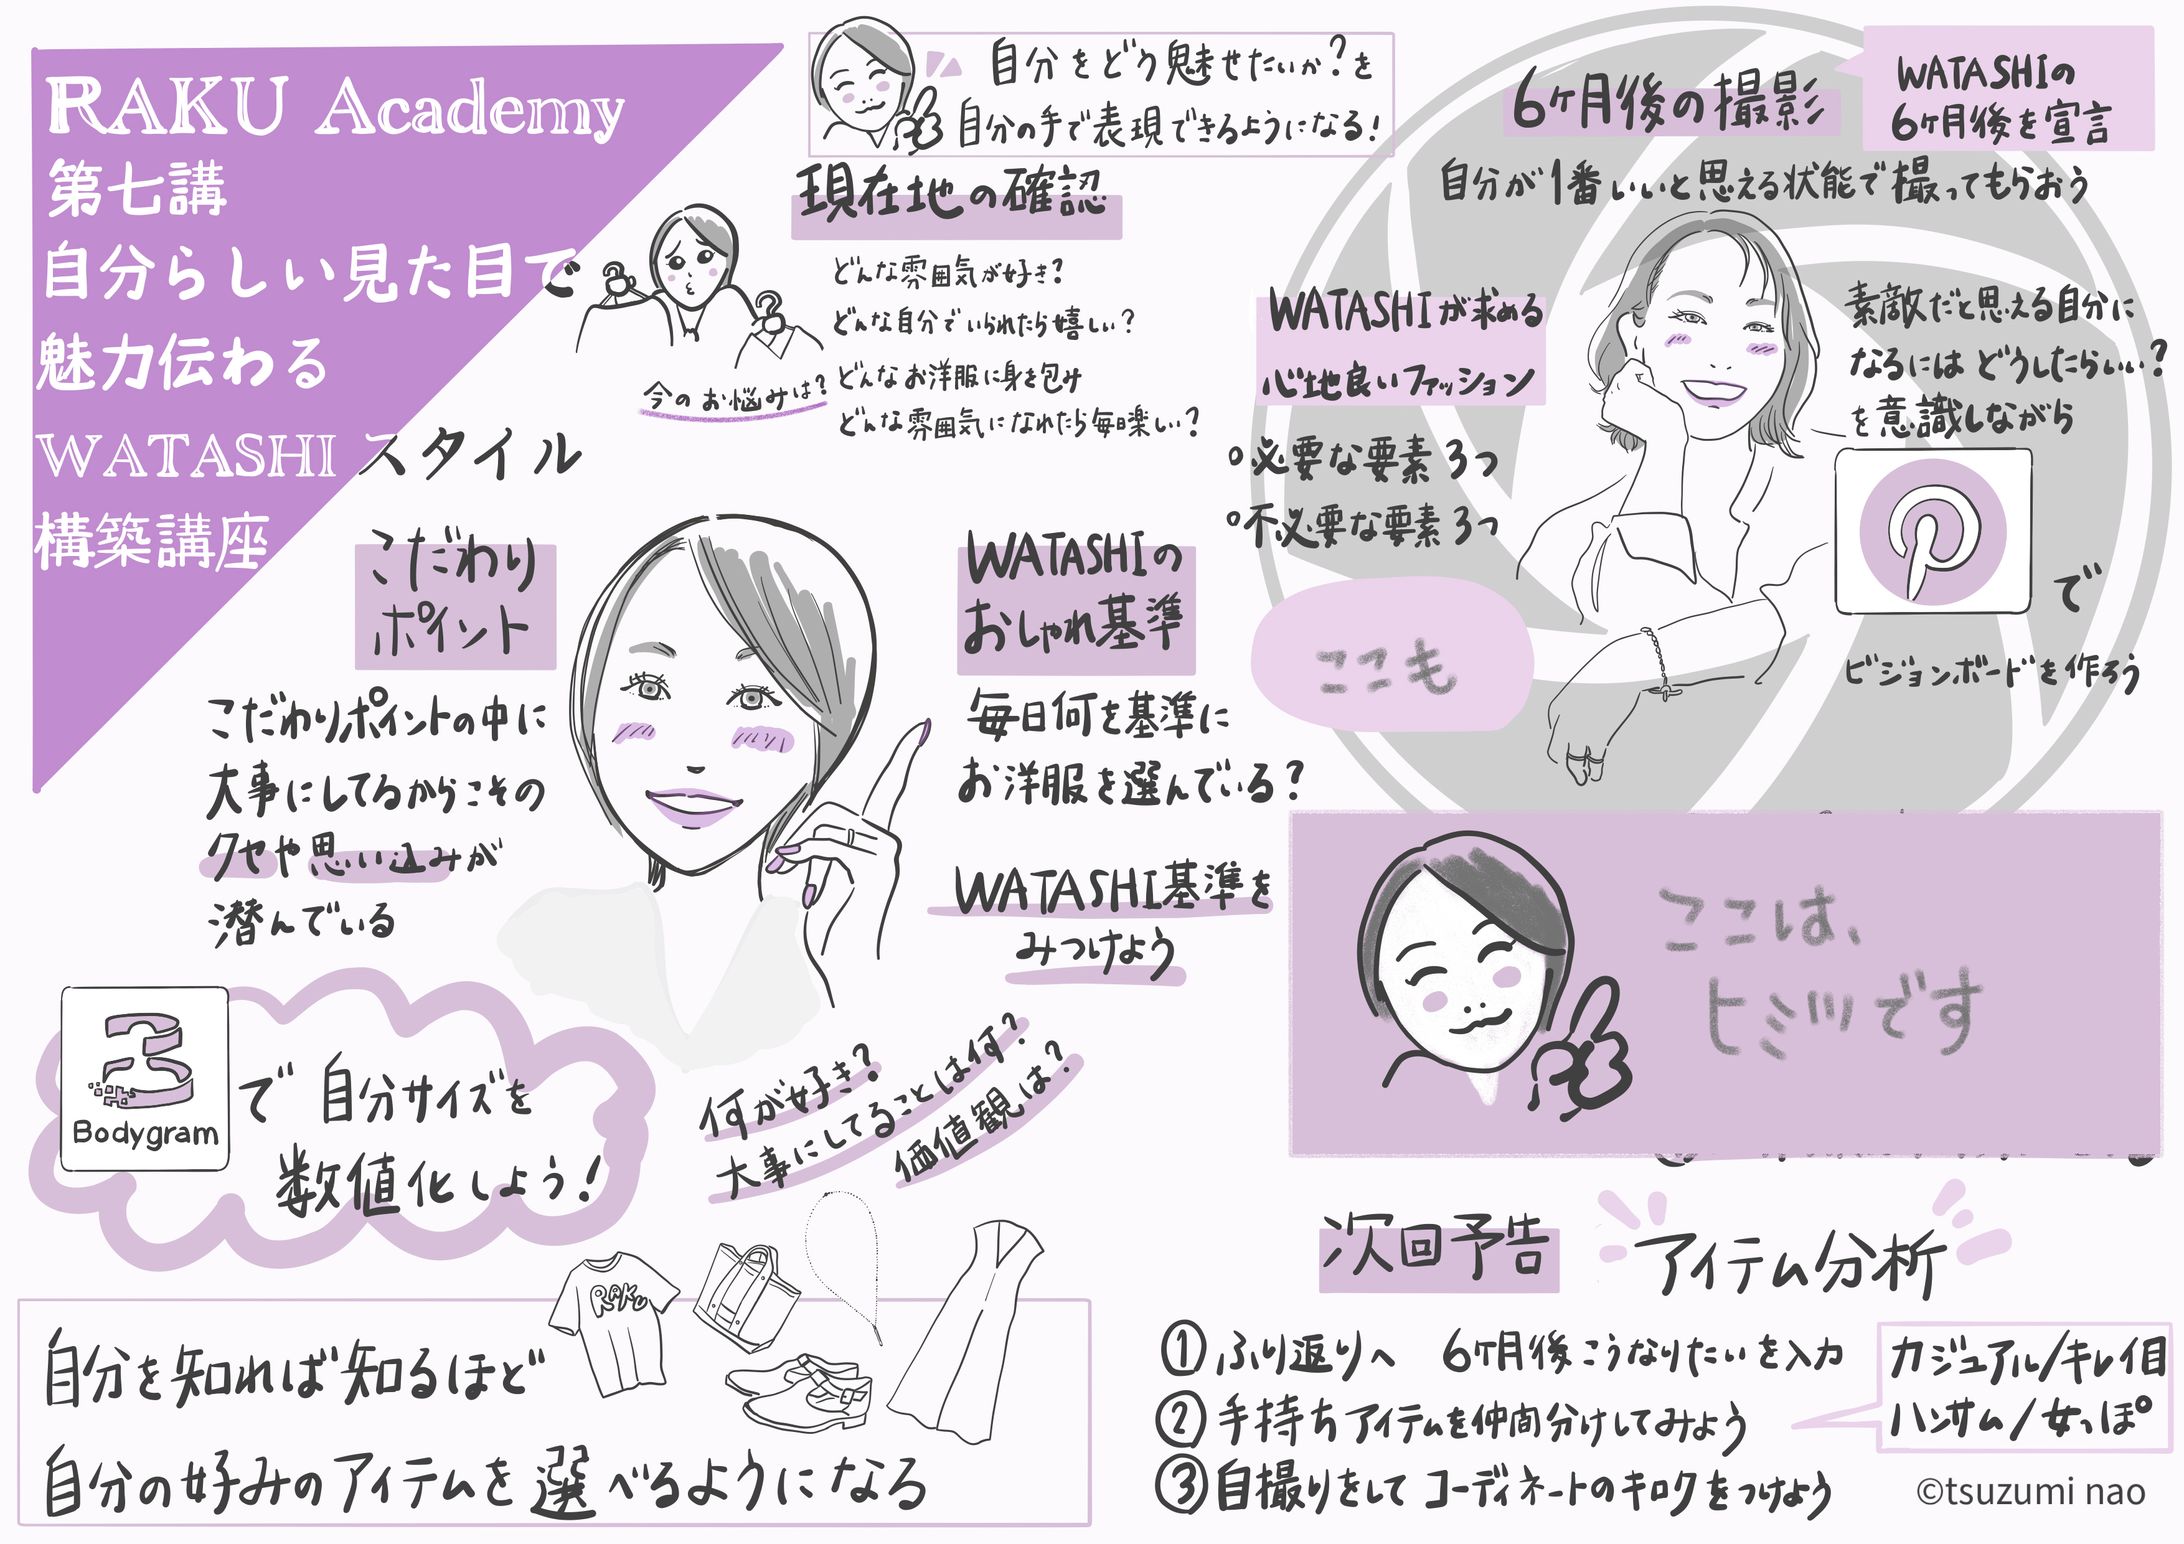 RAKU Academy
第七講
自分らしい見た目で
魅力伝わる
WATASHI スタイル
構築講座
自分をどう魅せたいか?を
自分の手で表現できるようになる!
現在地の確認
どんな雰囲気が好き?
どんな自分でいられたら嬉しい?
どんなお洋服に身を包み
どんな雰囲気になれたら毎日楽しい?
今のお悩みは?
こだわり
ポイント
こだわりポイントの中に
大事にしてるからこその
クセや思い込みが
潜んでいる
WATASHIの
おしゃれ基準
毎日何を基準に
お洋服を選んでいる?
WATASHI基準を
みつけよう
何が好き?
大事にしてることは何?
価値観は?
Bodygram
で 自分サイズを
数値化しよう!
RAKU
自分を知れば知るほど
自分の好みのアイテムを選べるようになる
6ヶ月後の撮影
WATASHIの
6ヶ月後を宣言
自分が1番いいと思える状態で撮ってもらおう
WATASHIが求める
心地良いファッション
○必要な要素3つ
○不必要な要素3つ
ここも
素敵だと思える自分に
なるには どうしたらいい?
を意識しながら
で
ビジョンボードを作ろう
ここは、
ヒミツです
次回予告
アイテム分析
①ふり返りへ 6ヶ月後こうなりたいを入力
②手持ちアイテムを仲間分けしてみよう
③自撮りをして コーディネートのキロクをつけよう
カジュアル/キレイ目
ハンサム/女っぽ
©tsuzumi nao